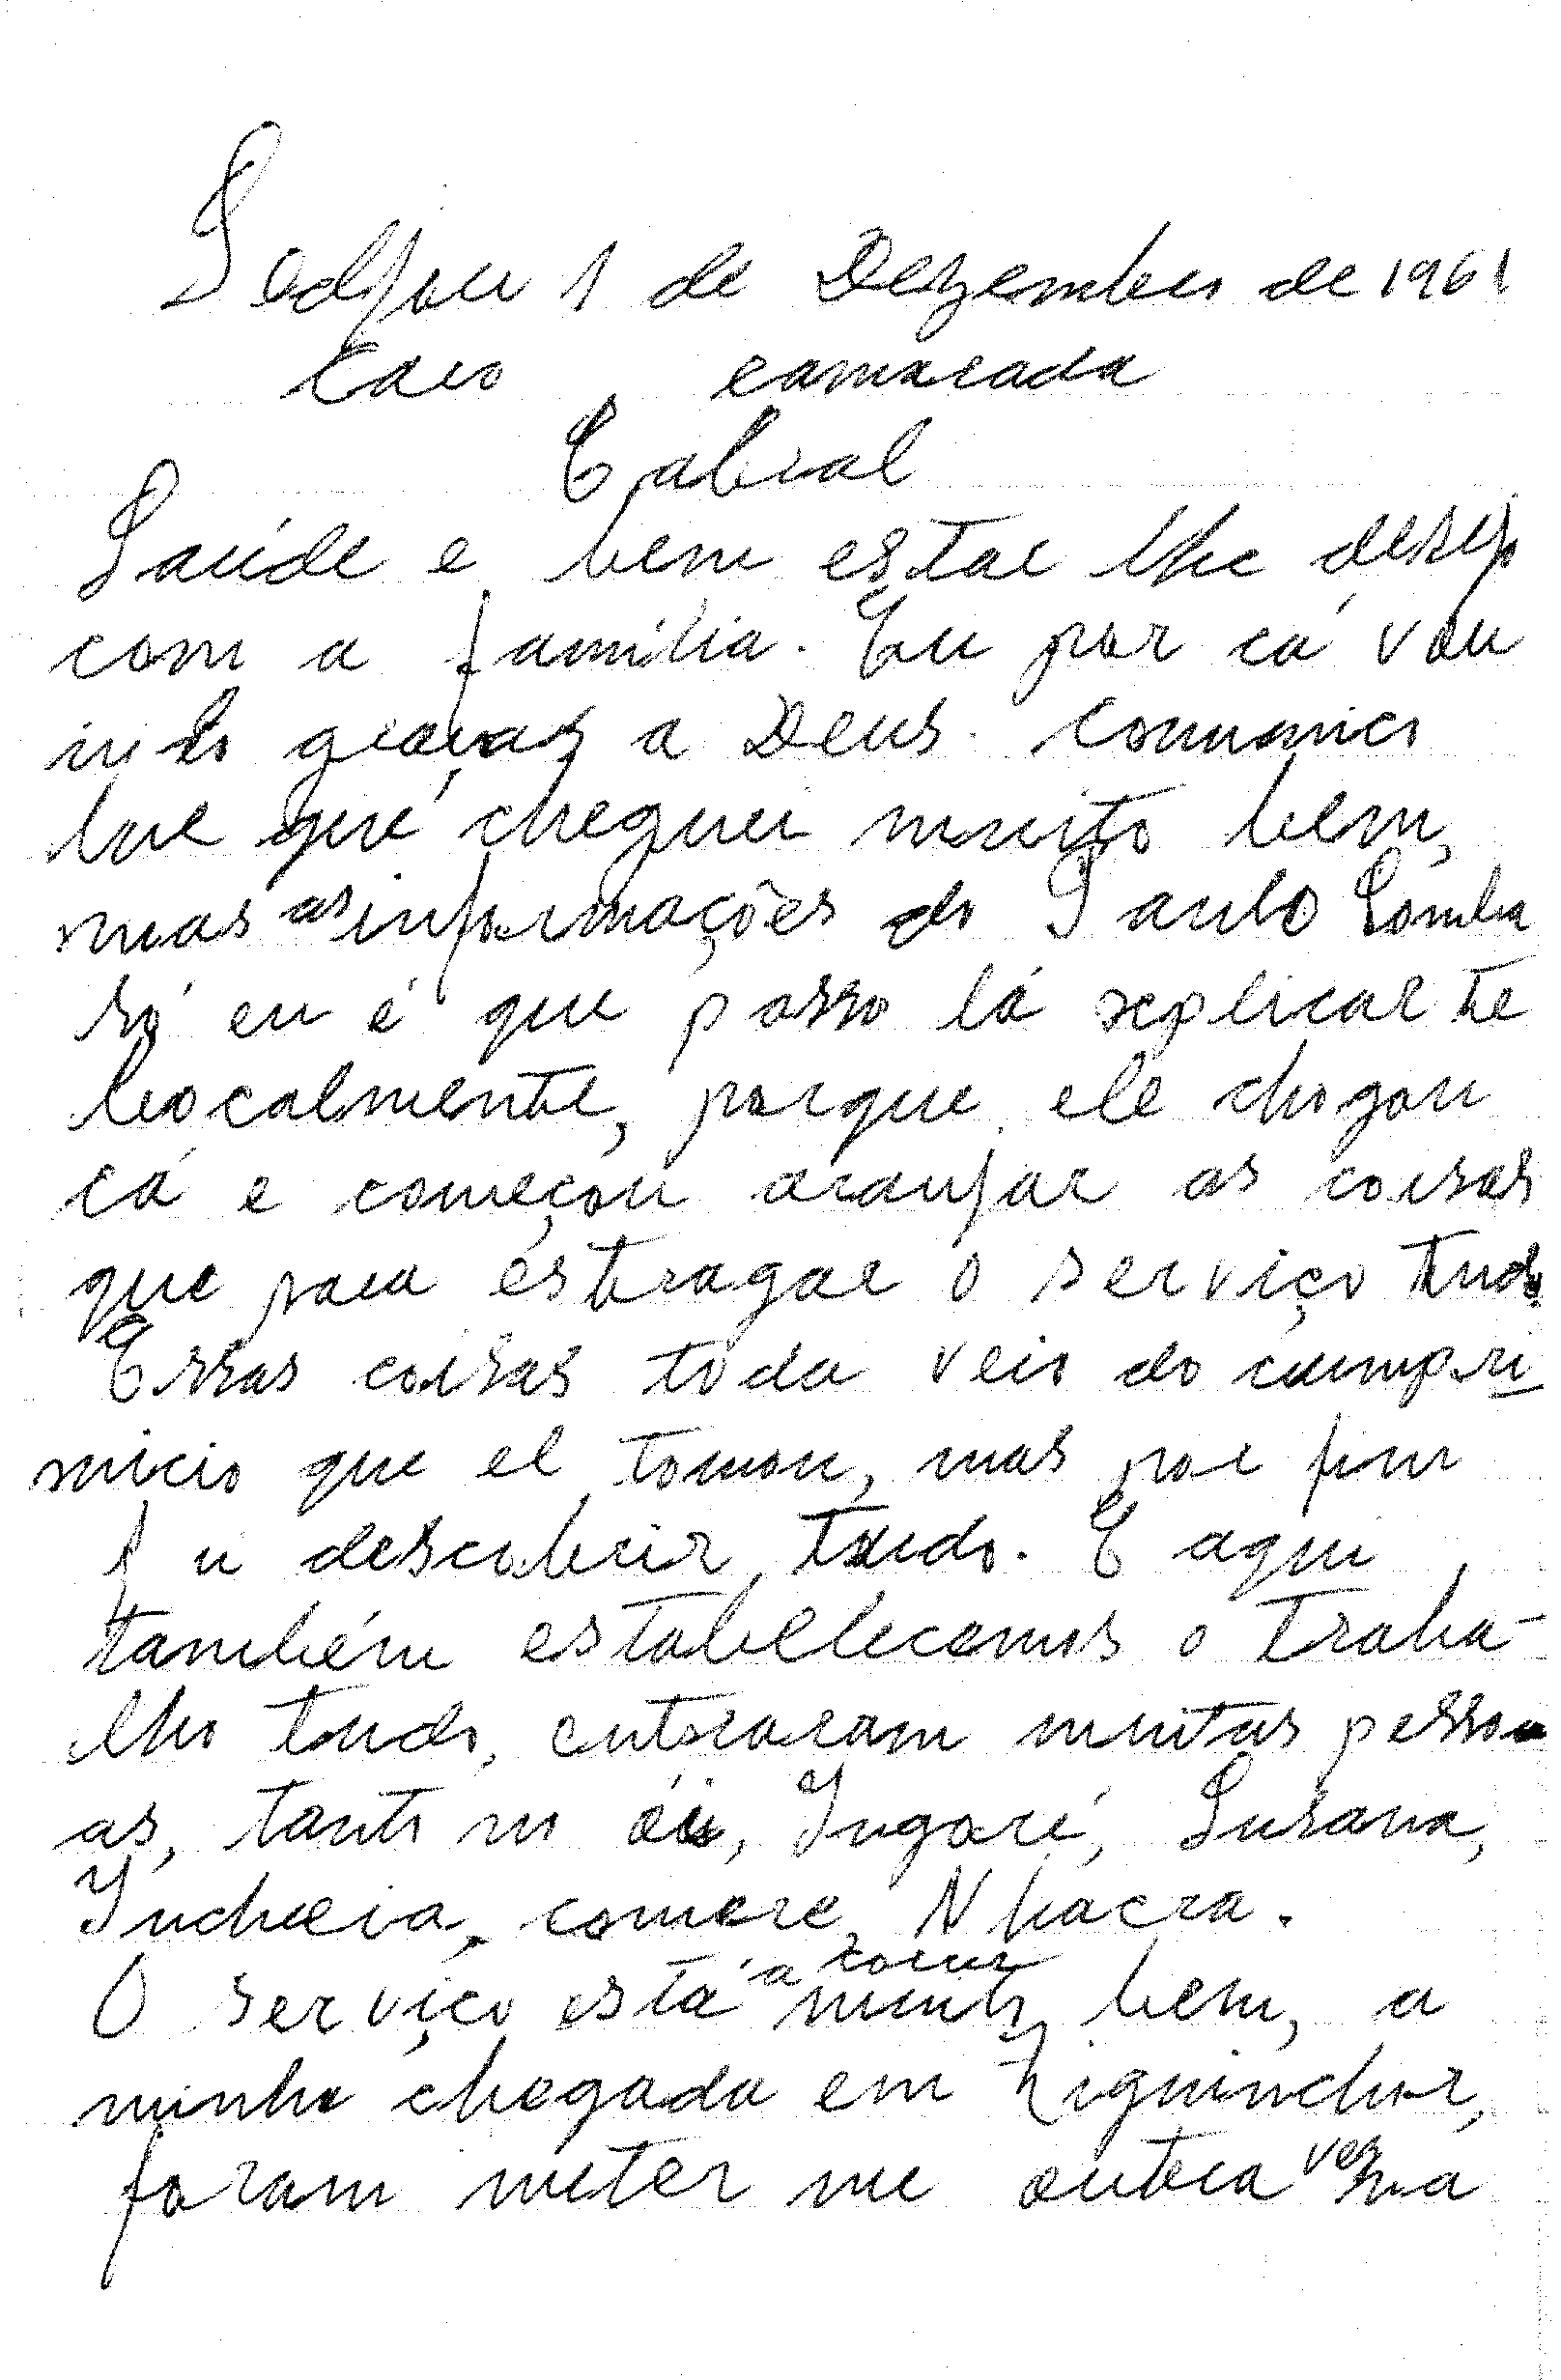 Sedjou 1 de Dezembro de 1961
Caro camarada
Cabral
Saúde e bem estar lhe desejo
com a família. Eu por cá vou
indo graças a Deus. Comunico
lhe que cheguei muito bem,
mas as informações do Paulo Lomba
só eu é que posso lá explicar te
bocalmente, porque ele chogou
cá e começou aranjar as coisas
que para estragar o serviço tudo.
Essas coisas toda veio do cumpri
micio que el tomou, mas por fim
descubrir tudo. E aqui
também estabelecemos o traba-
lho tudo, entraram muitas pesso
as, tanto no Ingoré, Susana,
comere Nhacra.
O serviço está a correr muito bem, a
minha chegada em Ziguinchor,
foram meter me outra vez na